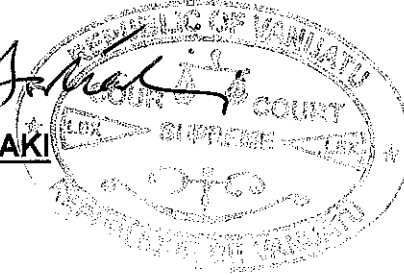 REPUBLIC OF VANUATU
COUR
COURT
LEX
SUPREME
LEX
AKI
REPUBLIQUE DE VANUATU